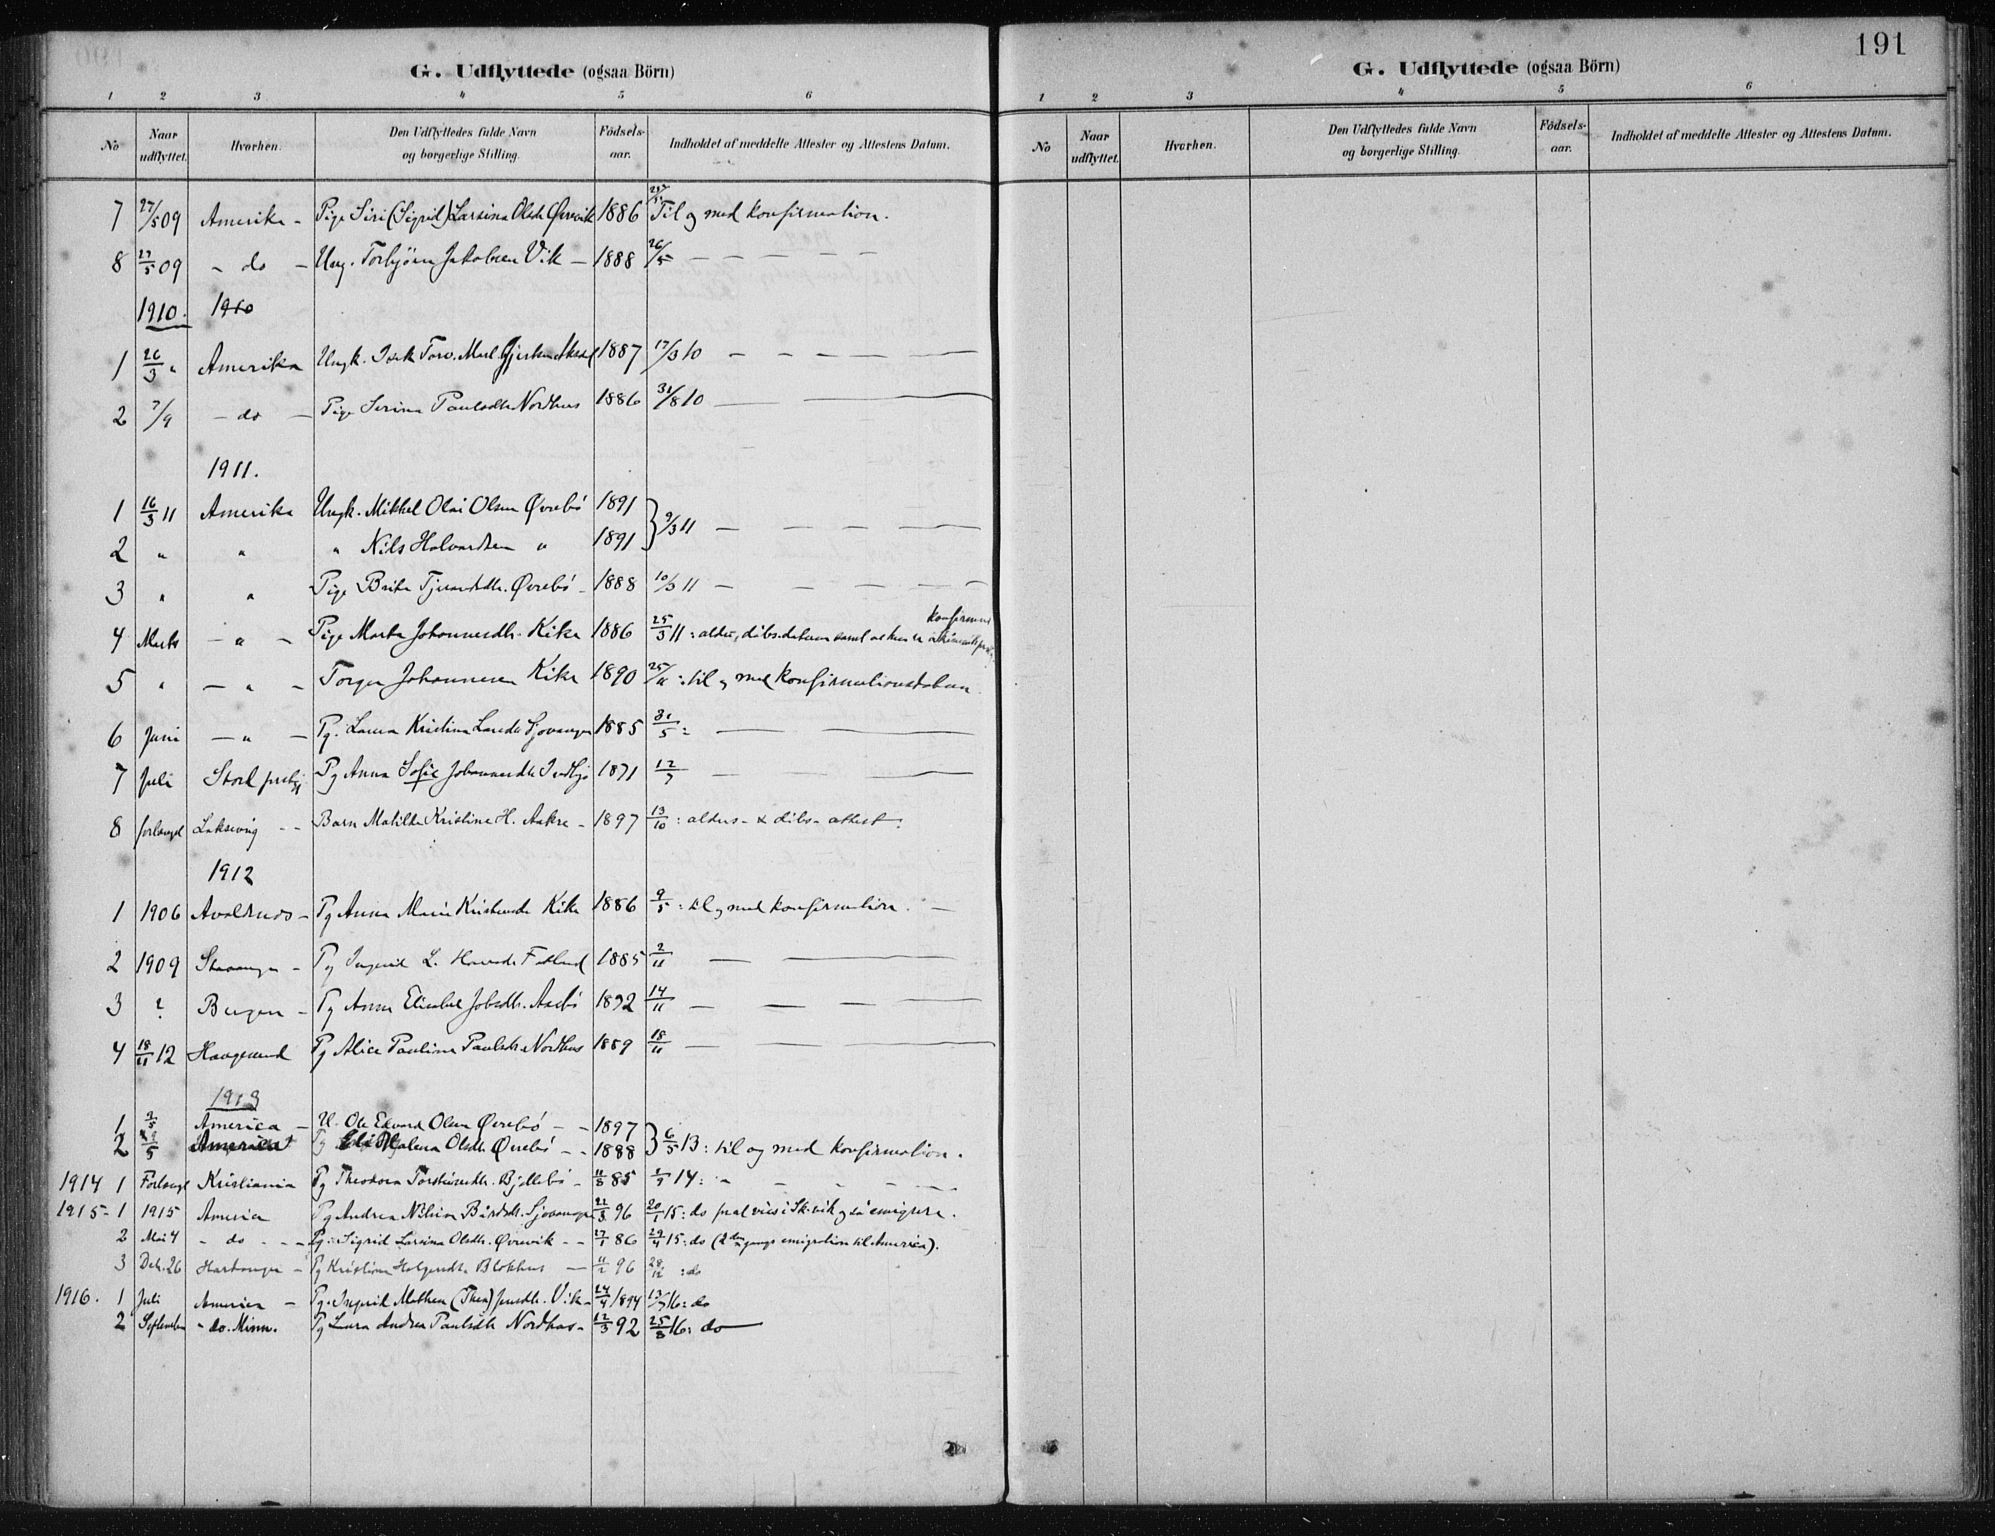 G. Udflyttede (ogsaa Börn)
1 2 3 4 5 6
No Naar udflyttet. Hvorhen. Den Udflyttedes fulde Navn og borgerlige Stilling. Födsels-aar. Indholdet af meddelte Attester og Attestens Datum.
7 27/5 09 Amerika - Pige Siri (Sigrid) Larsina Olsdr Øvrevik 1886 Til og med konfirmation.
8 27/5 09 - do - Ung. Torbjörn Jakobsen Vik - 1888 26/5 - - - - -
1910. 1910
1 26/3 " Amerika Ungk. 1887 17/3 10 - - - -
2 7/9 - do - Pige Serina Paulsdtr Nordhus 1886 31/8 10 - -
1911.
1 16/3 11 Amerika Ungk. Mikkel Olai Olsen Øvrebö 1891
2 " " " Nils Halvardsen " 1891 9/3 11 - - - -
3 " " Pige Brita Tjerandsdtr. Øvrebö - 1888 10/3 11 - - - -
konfirmeret
4 Marts - " - Pige Marta Johannesdtr. Kike 1886 25/3 11: alder, dåbs-datum samt at hun er
5 " - " - Torger Johannesen Kike 1890 25/11 : til og med konfirmationsdatum.
6 Juni - " - Pg. Laura Kristina Larsdtr Sjovangen 1885 31/5: - -
7 Juli Stord prstgj Pg Anna Sofie Johannesdtr 1871 12/7 - - -
8 forlængst Laksevåg - - Barn Matilda Kristine H. Aakre - 1897 13/10 : alders- & dåbs-attest.
1912
1 1906 Avaldsnes - Pg Anna Marie Kristensdtr Kike 1886 9/5 : til og med konfirmation. -
2 1909 Stavanger - Pg Ingerid L. Fatland 1885 2/11 - - - -
3 ? Bergen - Pg Anna Elisabet Jobsdtr. Aasbö 1892 14/11 - - - -
4 18/11 12 Haugesund Pg Alice Pauline Paulsdtr Nordhus 1889 18/11 - - - -
1913
1 9/5 America - U. Ole Edvard Olsen Øvrebö - - 1897
2 9/5 America Pg Malena Olsdtr. Øvrebö - - 1888 6/5 13: til og med konfirmation.
1914 1 Forlængst Kristiania Pg Theodora Torsteinsdtr. Bjellebö - 11/8 85 14: - - - - -
1915 - 1 1915 America Pg Andrea Nilsina Bårdsdtr. Sjovangen 22/3 96 20/1 15: do
2 Mai 4 - do - - - Pg. Sigrid Larsina Olsdtr. Øvrevik - - 27/1 86 29/4 15: do (2den gangs emigration til America).
3 Dek. 26 Hardanger - Pg Kristiana Helgesdtr Blokhus - 11/2 96 28/12 : do
1916. 1 Juli America - Pg. Ingerid Mathea (Thea) Jensdtr. Vik - 24/4 1894 13/7 16: do
2 September - do. Minn. Pg Laura Andrea Paulsdtr Nordhus - 12/3 92 25/8 16: do
191
G. Udflyttede (ogsaa Börn)
1 2 3 4 5 6
No Naar udflyttet. Hvorhen. Den Udflyttedes fulde Navn og borgerlige Stilling. Födsels-aar. Indholdet af meddelte Attester og Attestens Datum.